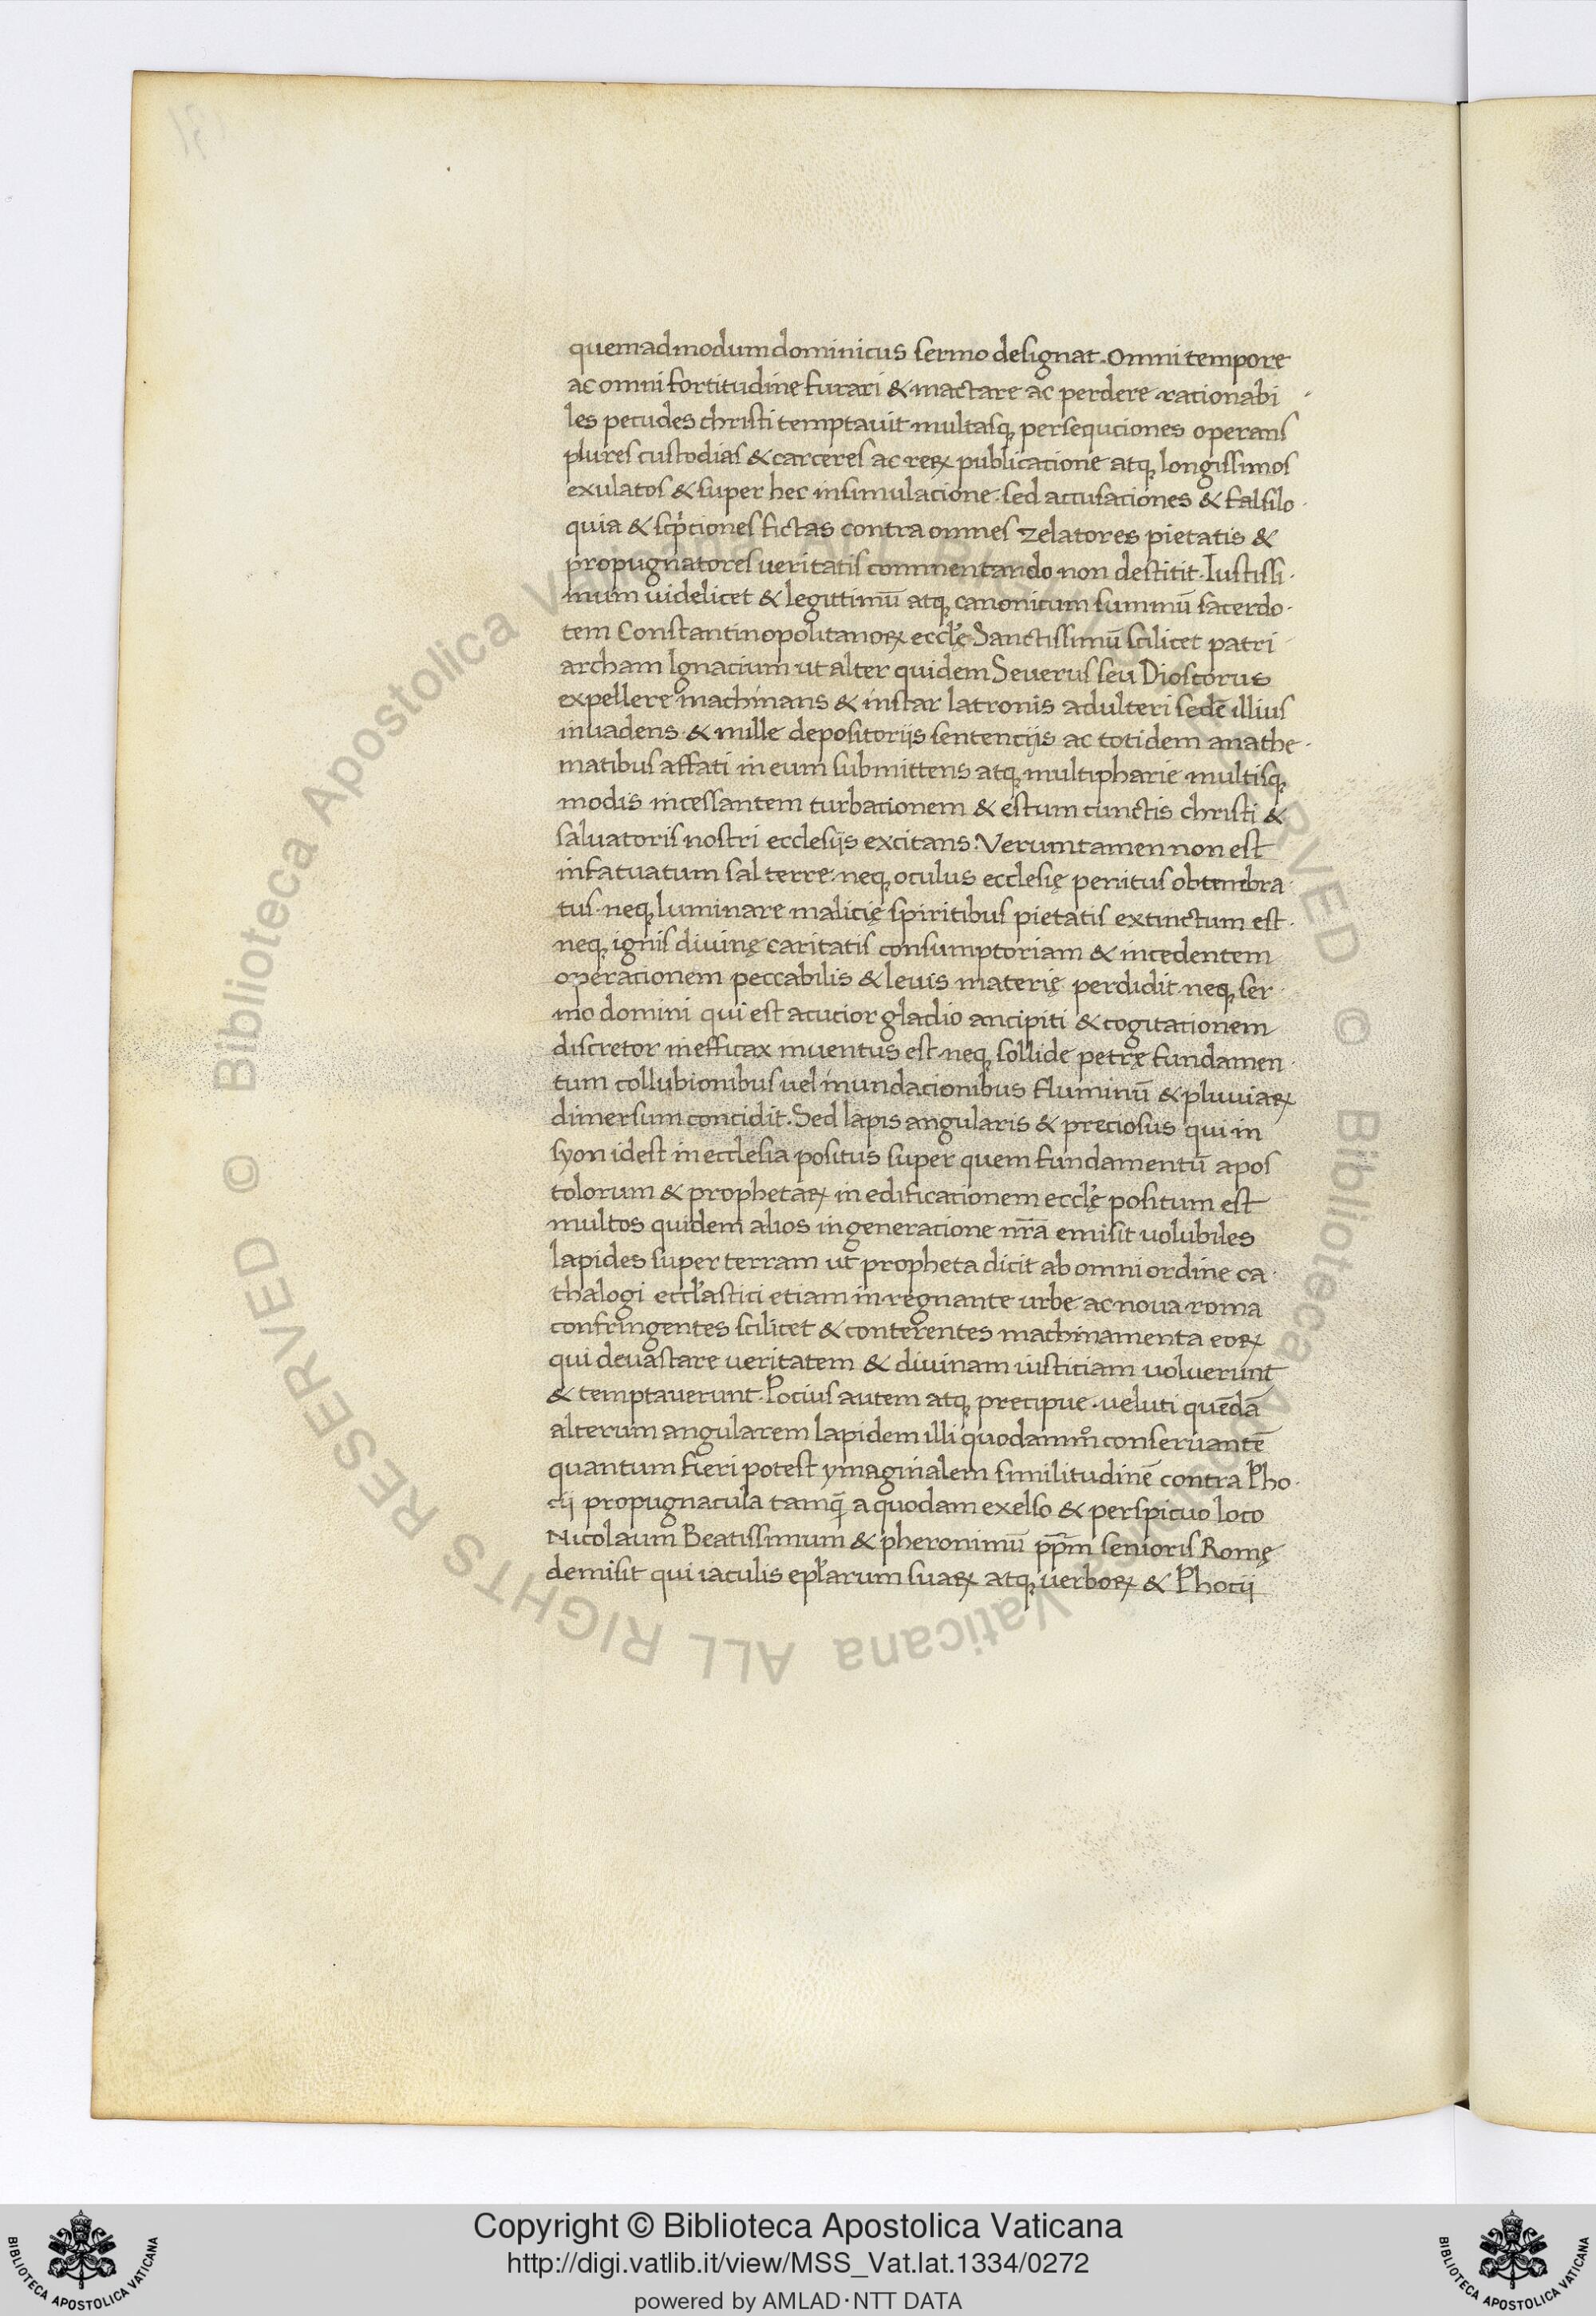 quemadmodum dominicus sermo designat. Omni tempore
ac omni fortitudine furari & mactare ac perdere rationabi
les pecudes christi temptauit multasq; persequciones operans
plures custodias & carceres ac reꝝ publicacione atq; longissimos
exulatos & super hec insimulacione. sed accusaciones & falsilo
quia & scp̓ciones fictas contra omnes zelatores pietatis &
propugnatores ueritatis commentando non destitit. Iustissi
mum uidelicet & legitimū atq; canonicum summū sacerdo
tem Constantinopolitanoꝝ eccl̓ę Sanctissimū scilicet patri
archam Ignacium ut alter quidem Seuerus seu Dioscorus
expellere machinans & instar latronis adulteri sedē illius
inuadens & mille depositorijs sentencijs ac totidem anathe
matibus affati in eum submittens atq; multipharie multisq;
modis incessantem turbacionem & estum cunctis christi &
saluatoris nostri ecclesijs excitans. Veruntamen non est
infatuatum sal terre. neq; oculus ecclesię penitus obtenebra
tus. neq; luminare malicię spiritibus pietatis extinctum est.
neq; ignis diuinę caritatis consumptoriam & incedentem
operacionem peccabilis & leuis materię perdidit. neq; ser
mo domini qui est acucior gladio ancipiti & cogitacionem
discretor inefficax inuentus est. neq; sollide petrę fundamen
tum collubionibus uel inundacionibus fluminū & pluuiaꝝ
dimersum concidit. Sed lapis angularis & preciosus qui in
syon idest in ecclesia positus super quem fundamentū apos
tolorum & prophetaꝝ in edificacionem eccl̓ę positum est
multos quidem alios in generacione nr̄a emisit uolubiles
lapides super terram ut propheta dicit ab omni ordine ca
thalogi eccl̓astici etiam in regnante urbe ac noua roma
confringentes scilicet & conterentes machinamenta eoꝝ
qui deuastare ueritatem & diuinam iusticiam uoluerunt
& temptauerunt. Pocius autem atq; precipue. ueluti quēdā
alterum angularem lapidem illi quodammo̊ conseruantē
quantum fieri potest ymaginalem similitudinē contra Pho
cij propugnacula tamq̄ a quodam exelso & perspicuo loco
Nicolaum Beatissimum & pheronimū pp̄m senioris Romę
demisit qui iaculis epl̓arum suaꝝ atq; uerboꝝ & Phocij
Copyright © Biblioteca Apostolica Vaticana
http://digi.vatlib.it/view/MSS_Vat.lat.1334/0272
powered by AMLAD·NTT DATA
BIBLIOTECA APOSTOLICA VATICANA
BIBLIOTECA APOSTOLICA VATICANA
© Biblioteca Apostolica Vaticana ALL RIGHTS RESERVED © Biblioteca Apostolica Vaticana ALL RIGHTS RESERVED